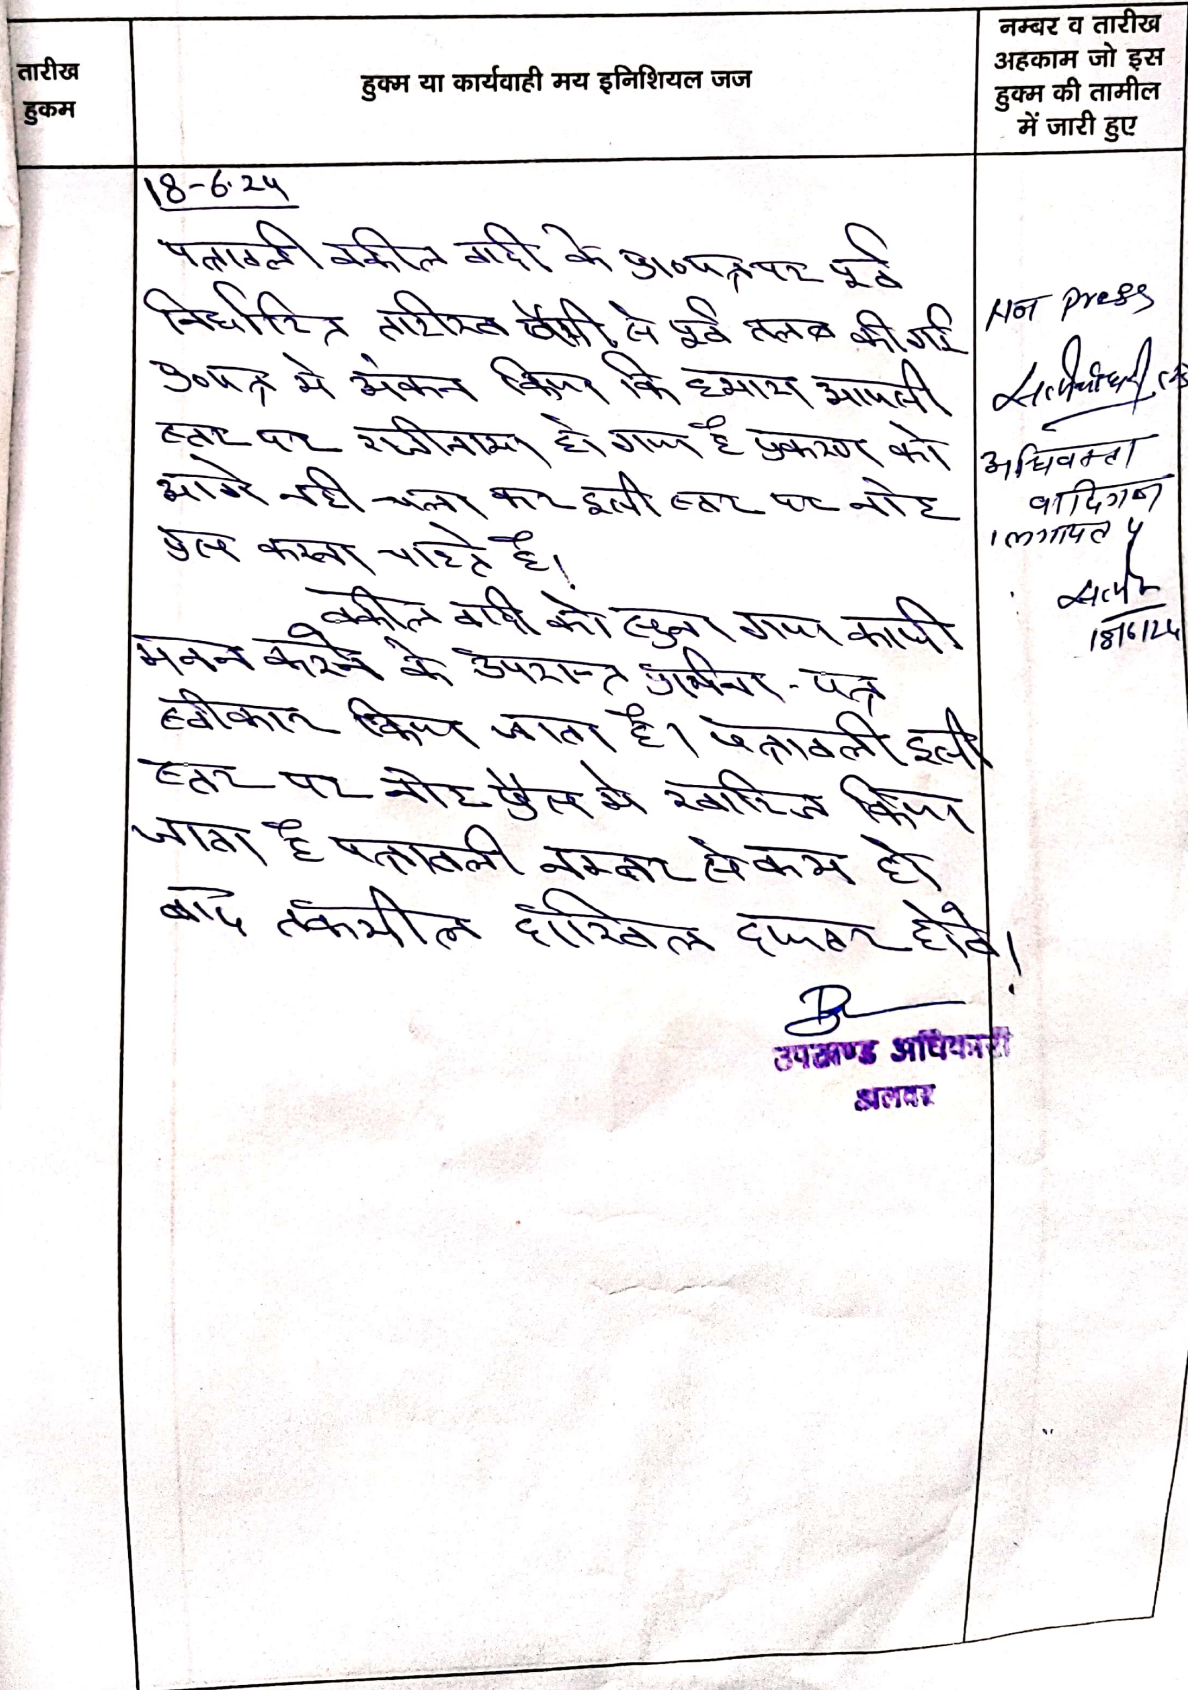 तारीख
हुकम
हुक्म या कार्यवाही मय इनिशियल जज
नम्बर व तारीख
अहकाम जो इस
हुक्म की तामील
में जारी हुए
18-6-24
पत्रावली वकील वादी के प्रा०पत्र पर पूर्व
निर्धारित तारीख पेशी से पूर्व तलब की गई
प्रा०पत्र मे अंकन किया कि हमारा आपसी
स्तर पर राजीनामा हो गया है प्रकरण को
आगे नही चला कर इसी स्तर पर नोट
प्रेस करना चाहते है।
वकील वादी को सुना गया काफी
मनन करने के उपरान्त प्रार्थना-पत्र
स्वीकार किया जाता है। पत्रावली इसी
स्तर पर नोट प्रेस मे खारिज किया
जाता है पत्रावली नम्बर से कम हो
बाद तकमील दाखिल दफ्तर होवे।
उपखण्ड अधिकारी
अलवर
Not Press
अधिवक्ता
वादिगण
1 लगायत 5
18/6/24